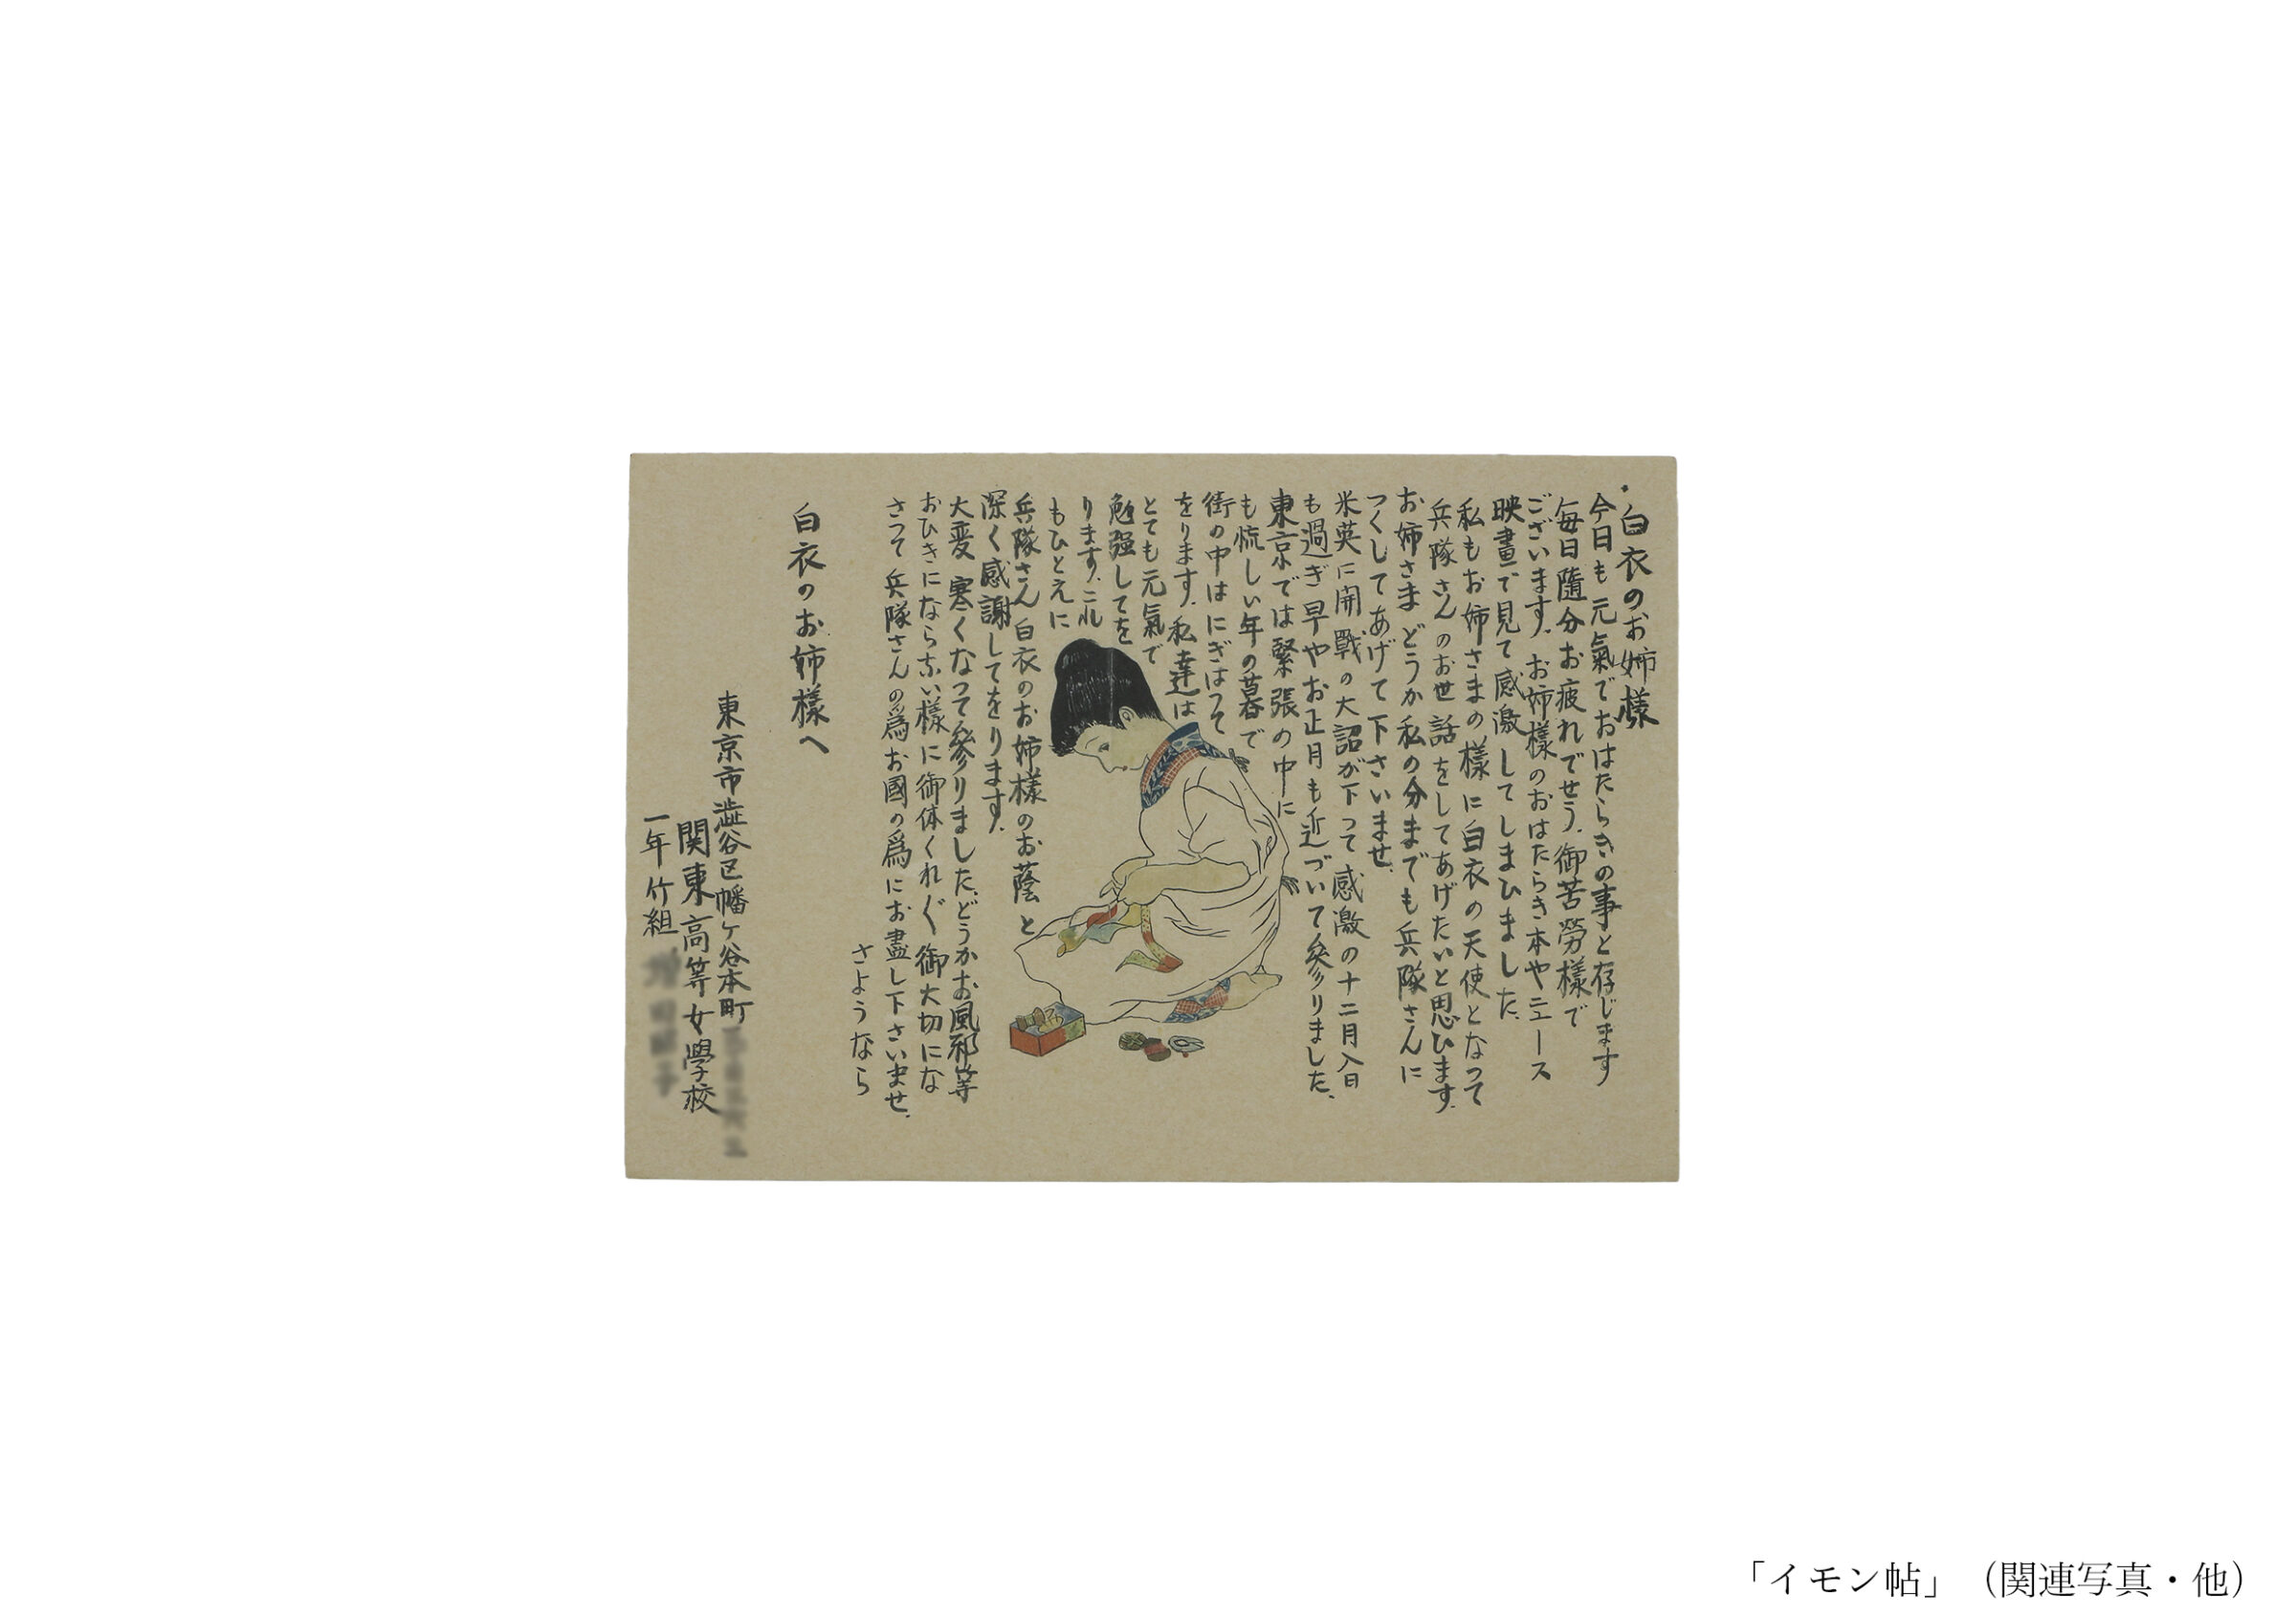 白衣のお姉様
今日も元氣でおはたらきの事と存じます
毎日隨分お疲れでせう。御苦勞樣で
ございます。お姉樣のおはたらき本やニュース
映畫で見て感激してしまひました。
私もお姉さまの樣に白衣の天使となつて
兵隊さんのお世話をしてあげたいと思ひます。
お姉さまどうか私の分までも兵隊さんに
つくしてあげて下さいませ。
米英に開戰の大詔が下つて感激の十二月八日
も過ぎ早やお正月も近づいて參りました。
東京では緊張の中に
も慌しい年の暮で
街の中はにぎはつて
をります。私達は
とても元氣で
勉强してを
ります。これ
もひとえに
兵隊さん白衣のお姉樣のお蔭と
深く感謝してをります。
大変寒くなつて參りました。どうかお風邪等
おひきにならない樣に御体くれぐ御大切にな
さつて兵隊さんの爲お國の爲にお盡し下さいませ。
さようなら
白衣のお姉樣へ
東京市澁谷区幡ヶ谷本町
関東高等女學校
一年竹組
「イモン帖」（関連写真・他）